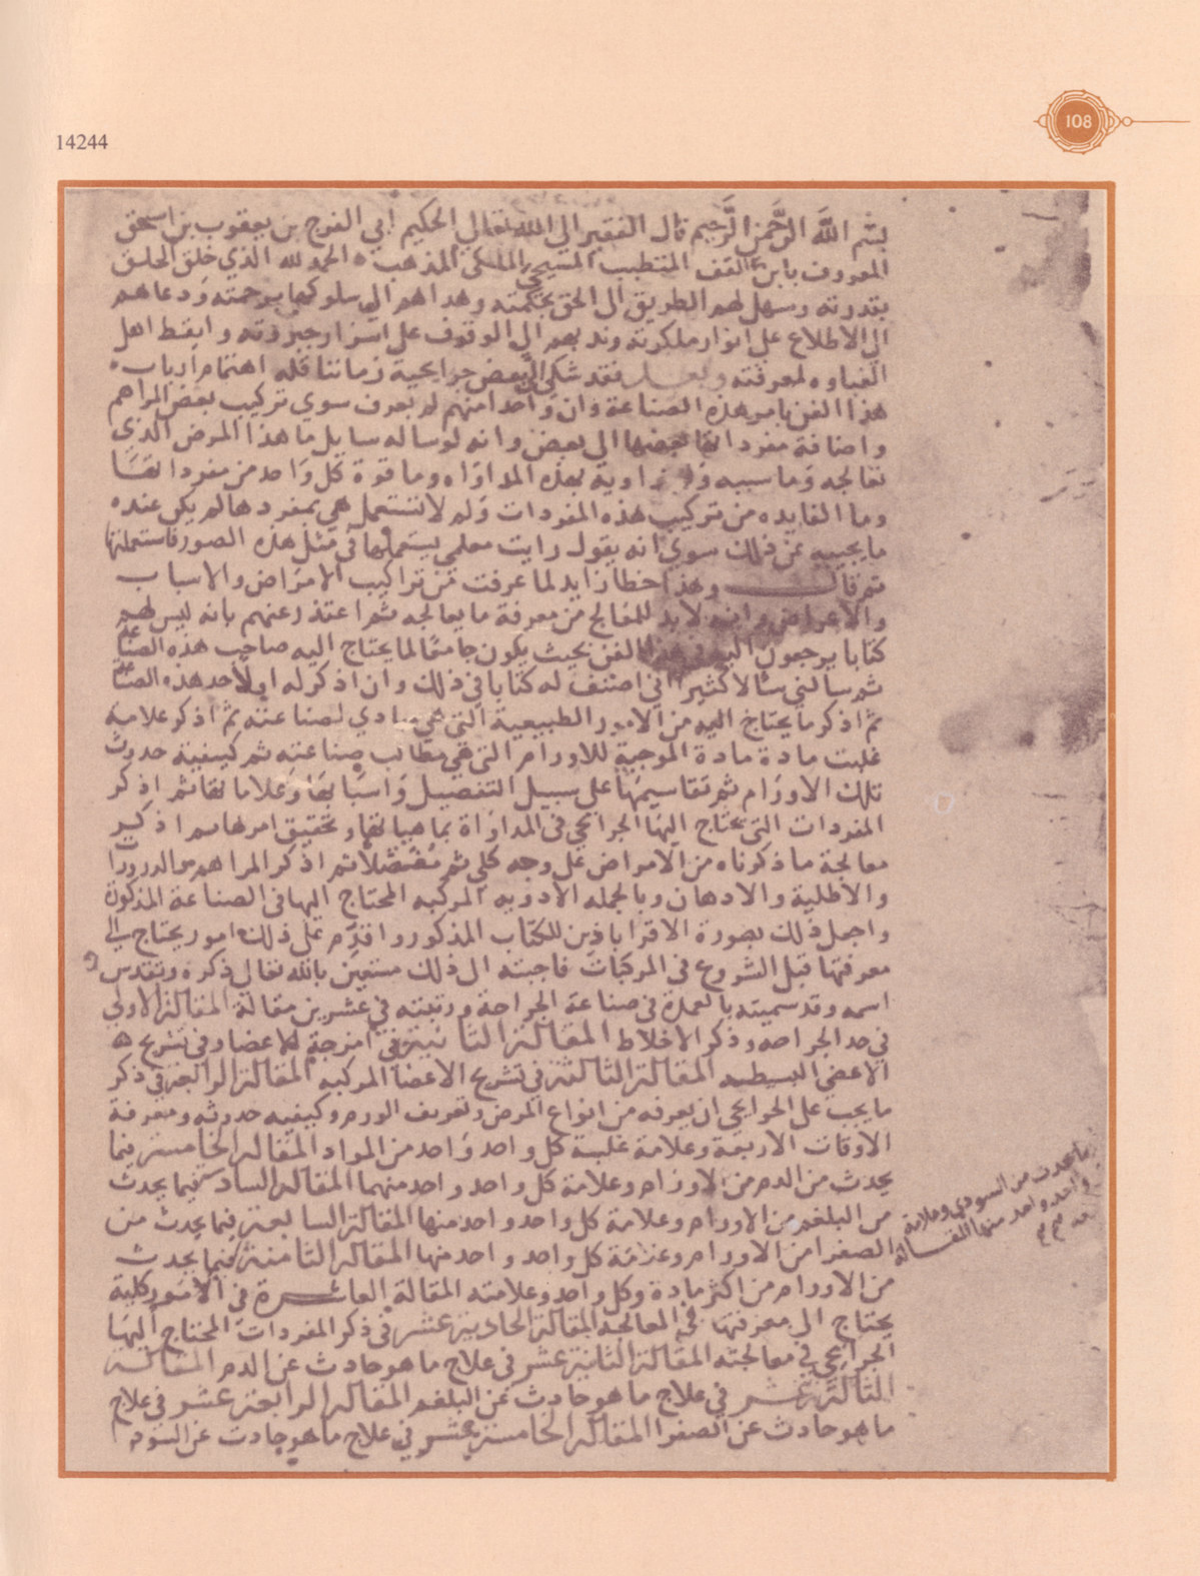 108
14244
بسم الله الرحمن الرحيم قال الفقير الي الله تعالي الحكيم ابي الفرج بن يعقوب بن اسحق
المعروف بابن القف المتطبب المسيحي الملكي المذهب الحمد لله الذي خلق الخلق
بقدرته وسهل لهم الطريق الي الحق بحكمته وهداهم الي سلوكها برحمته ودعاهم
الي الاطلاع علي انوار ملكوته وندبهم الي الوقوف علي اسرار جبروته وايقظ اهل
الغباوه لمعرفته وبعد فقد شكي الي بعض جرايحية زماننا قله اهتمام ارباب
هذا الفن بامر هذه الصناعة وان واحدا منهم لم يعرف سوي تركيب بعض المراهم
واضافة مفرداتها بعضها الي بعض وانه لو ساله سايل ما هذا المرض الذي
تعالجه وما سببه و داويته بهذه المداواه وما قوة كل واحد من مفرداتها
وما الفايده من تركيب هذه المفردات ولم لا تستعمل هي بمفردها لم يكن عنده
ما يجيبه عن ذلك سوي انه يقول رايت معلمي يستعملها في مثل هذه الصور فاستعملتها
ثم قال وهذا خطا زايد لما عرفت من تراكيب الامراض والاسباب
والاعراض وانه لابد للمعالج من معرفة ما يعالجه ثم اعتذر عنهم بانه ليس لهم
كتابا يرجعون اليه في هذا الفن بحيث يكون جامعا لما يحتاج اليه صاحب هذه الصناعة
ثم سالني سؤالا كثيرا في اصنف له كتابا في ذلك وان اذكر له اولا حد هذه الصناعة
ثم اذكر ما يحتاج اليه من الامور الطبيعية التي هي مبادي لصناعته ثم اذكر علامة
غلبت مادة مادة الموجبة للاورام التي هي مطالب صناعته ثم كيفية حدوث
تلك الاورام ثم تقاسيمها علي سبيل التفصيل واسبابها وعلاماتها ثم اذكر
المفردات التي يحتاج اليها الجرايحي في المداواة بماهياتها وتحقيق امرها ثم اذكر
معالجة ما ذكرناه من الامراض علي وجه كلي ثم مفصلا ثم اذكر المراهم والدرورات
والاطلية والادهان وبالجمله الادويه المركبه المحتاج اليها في الصناعة المذكورة
واجعل ذلك بصورة الاقراباذين للكتاب المذكور واقدم علي ذلك امور يحتاج الي
معرفتها قبل الشروع في المركبات فاجبته الي ذلك مستعين بالله تعالي ذكره وتقدس
اسمه وقد سميته بالعمدة في صناعة الجراحة ورتبته في عشرين مقالة المقالة الاولي
في حد الجراحه وذكر الاخلاط المقالة الثانية في امزجة الاعضا وفي تشريح
الاعضي البسيطه المقالة الثالثة في تشريح الاعضا المركبه المقالة الرابعة في ذكر
ما يجب علي الجرايحي ان يعرفه من انواع المرض وتعريف الورم وكيفيه حدوثه ومعرفة
الاوقات الاربعة وعلامة غلبة كل واحد واحد من المواد المقالة الخامسة فيما
يحدث من الدم من الاورام وعلامة كل واحد واحد منهما المقالة السادسة فيما يحدث
من البلغم من الاورام وعلامة كل واحد واحد منها المقالة السابعة فيما يحدث من
الصفرا من الاورام وعلامة كل واحد واحد منها المقالة الثامنة فيما يحدث
من الاورام من اكثر مادة وكل واحد وعلامته المقالة العاشرة في الامور كلية
يحتاج الي معرفتها في المعالجه المقالة الحادية عشر في ذكر المفردات المحتاج اليها
الجرايحي في معالجته المقالة الثانية عشر في علاج ما هو حادث عن الدم المقالة
الثالثة عشر في علاج ما هو حادث عن البلغم المقالة الرابعة عشر في علاج
ما هو حادث عن الصفرا المقالة الخامسة عشر في علاج ما هو حادث عن السوده
ما يحدث من السودي وعلامة
واحد واحد منها المقالة